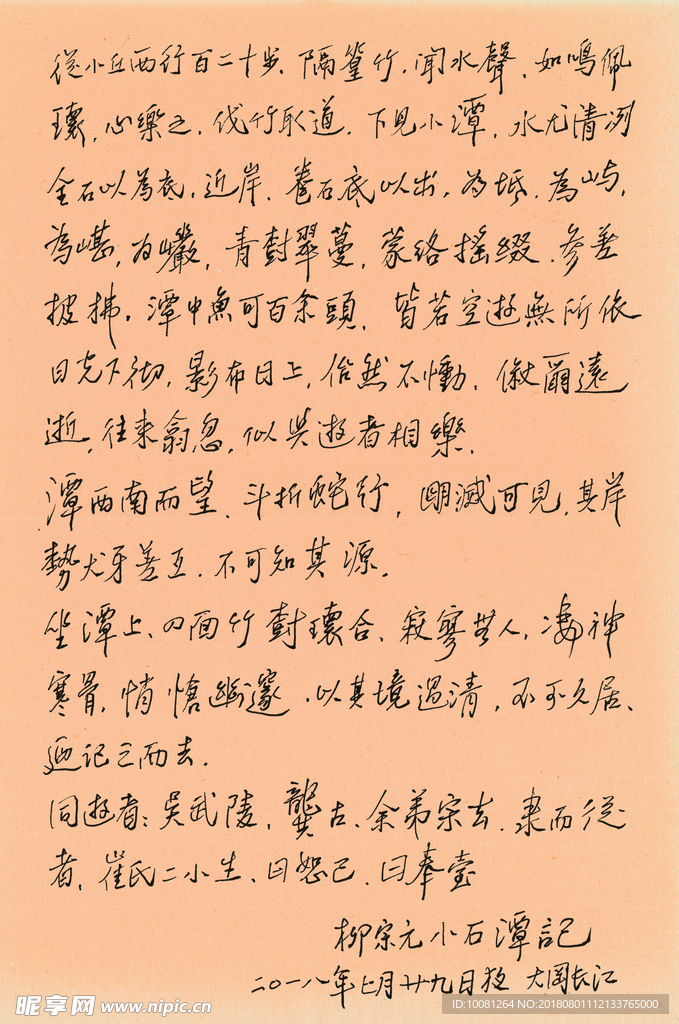 從小丘西行百二十步、隔篁竹，聞水聲，如鳴佩
環，心樂之，伐竹取道，下見小潭，水尤清冽
全石以為底，近岸，卷石底以出，為坻，為嶼，
為嵁，為巖，青樹翠蔓，蒙络搖綴，參差
披拂。潭中魚可百余頭，皆若空遊無所依
日光下徹，影布日上，佁然不慟，俶爾遠
逝，往来翕忽，似與遊者相樂，
潭西南而望，斗折蛇行，明滅可見，其岸
勢犬牙差互，不可知其源，
坐潭上、四面竹樹環合，寂寥無人，淒神
寒骨，悄愴幽邃，以其境過清，不可久居、
迺記之而去，
同遊者：吳武陵，龔古、余弟宗玄，隶而從
者，崔氏二小生、曰恕己，曰奉壹
柳宗元小石潭記
二〇一八年七月廿九日夜 大图长江
昵享网 www.nipic.cn
ID:10081264 NO:20180801112133765000